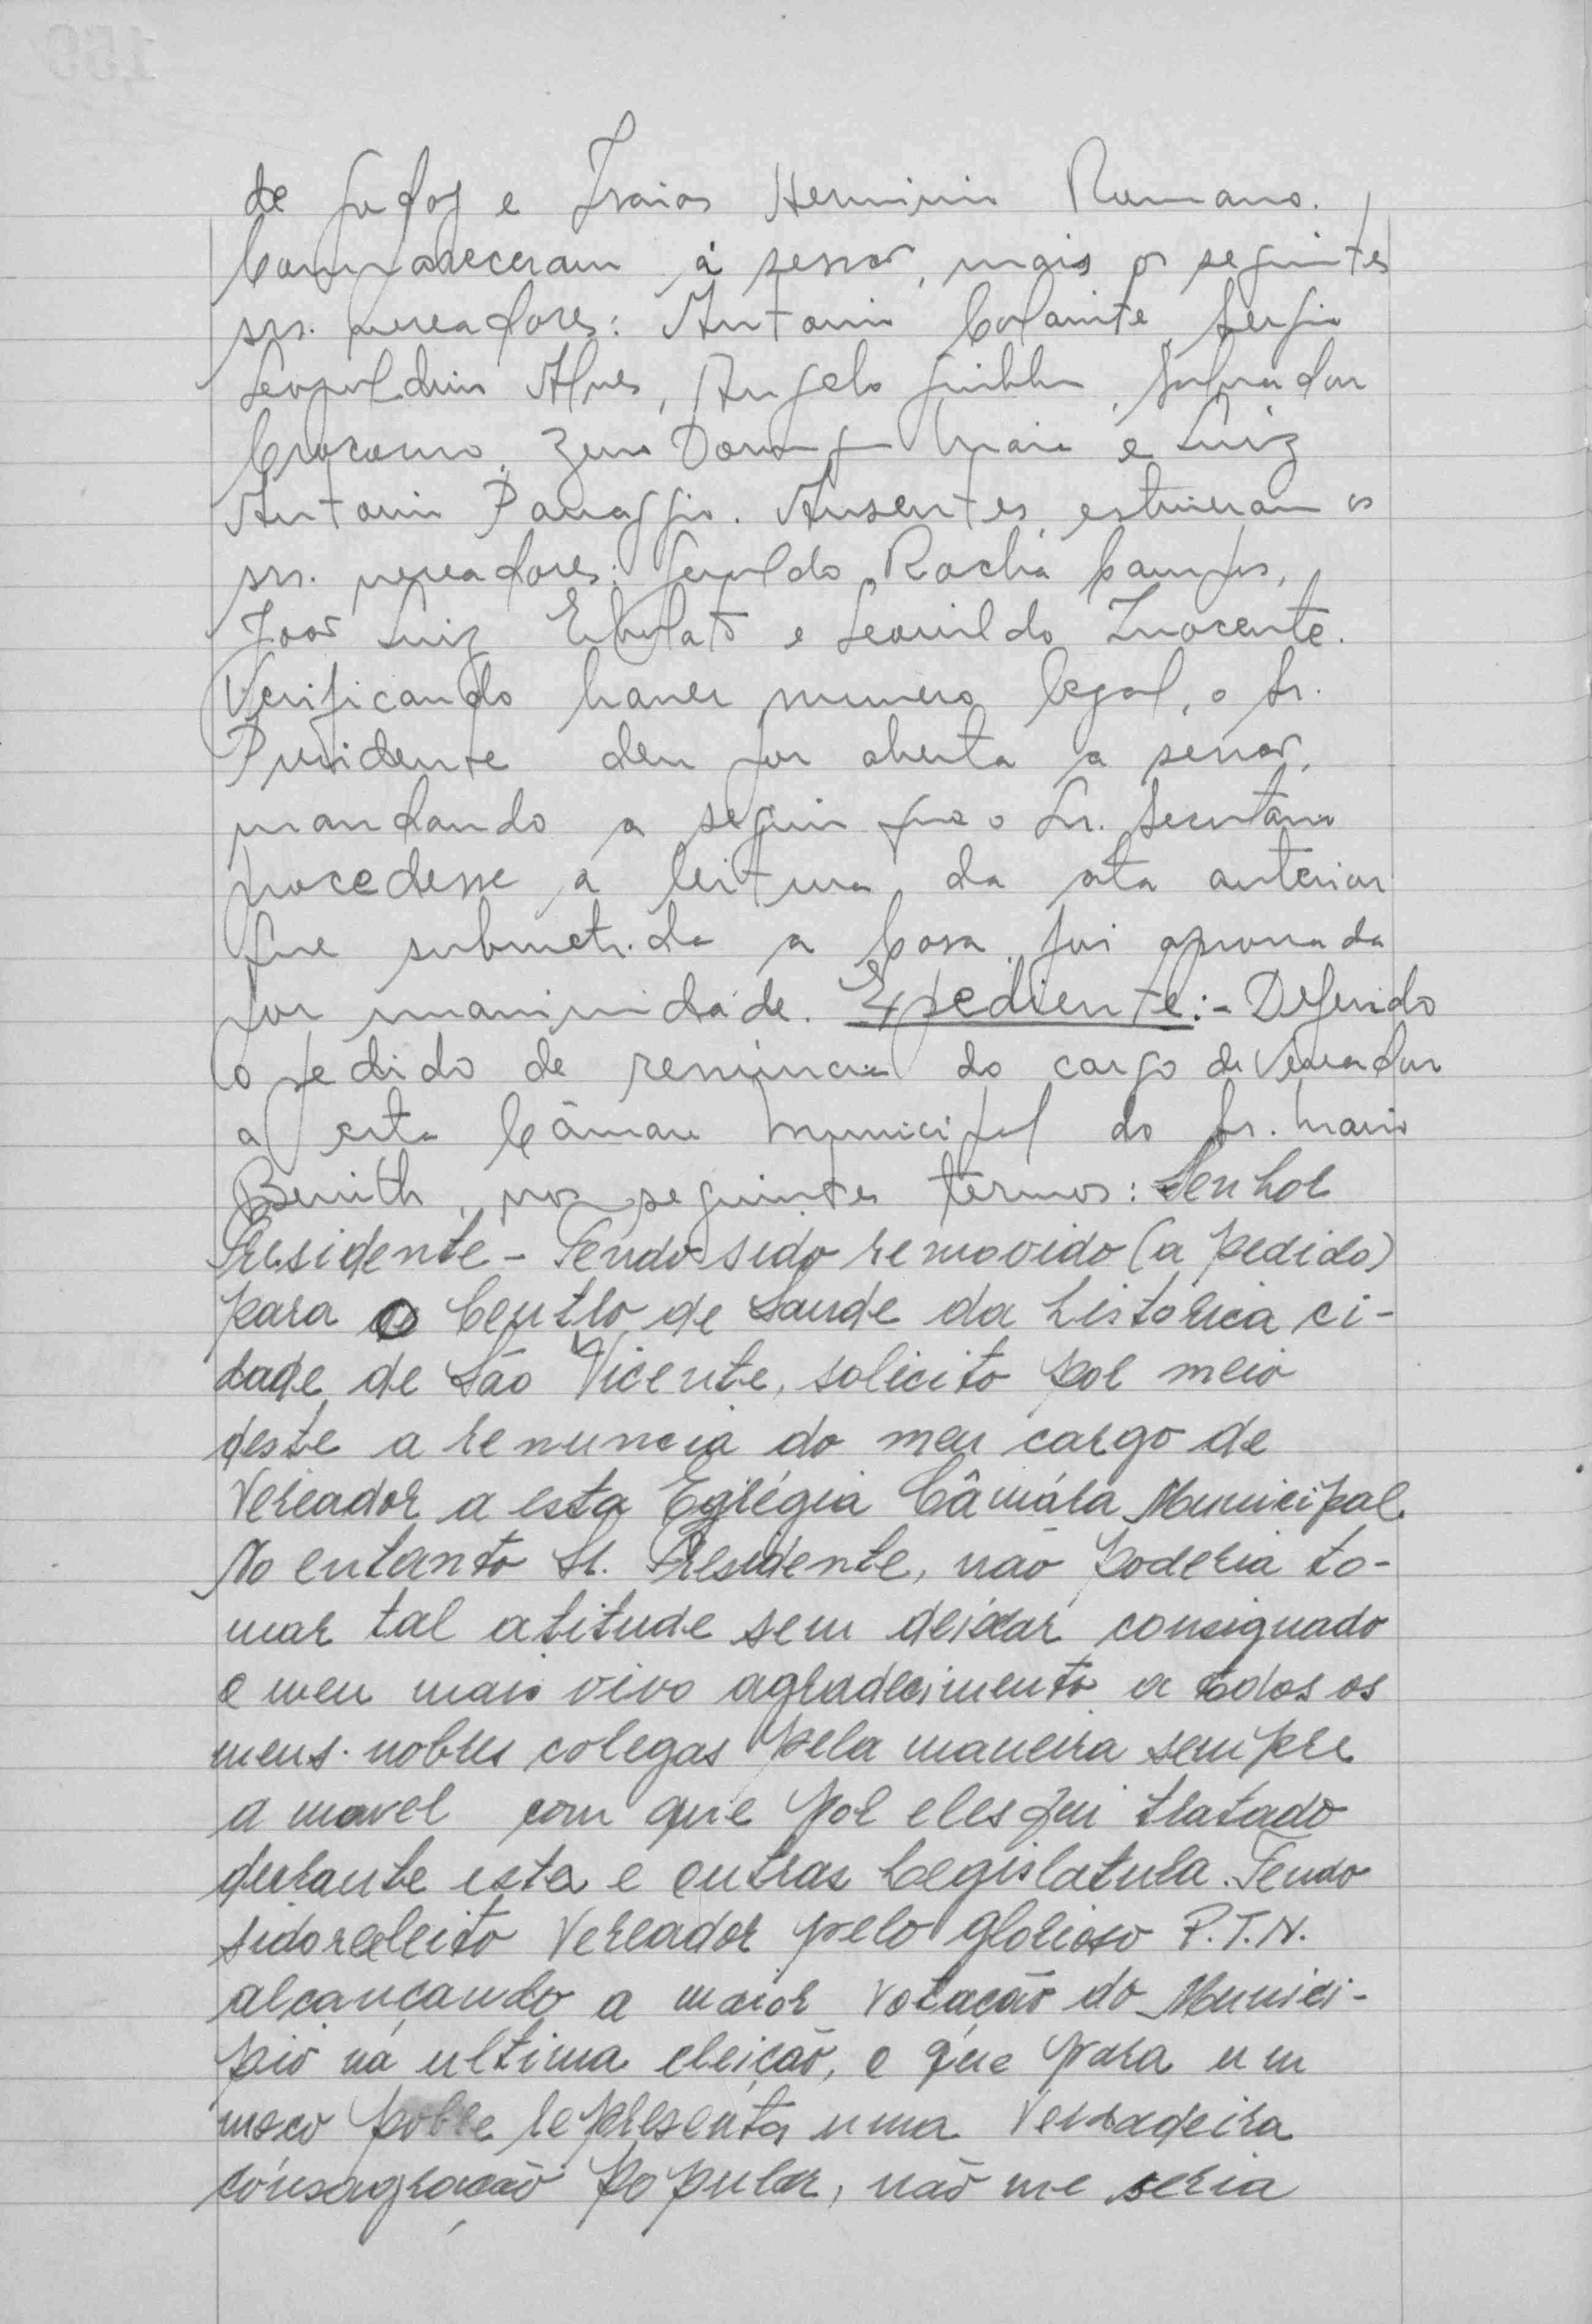 de Godoy e Isaias Herminio Romano.
Compareceram à sessão, mais os seguintes
srs. vereadores: Antonio Colavite, Sergio
Leopoldino Alves, Angelo, Salvador
Zeno Maia e Luiz
Antonio Panaggio. Ausentes, estiveram os
srs. vereadores: Geraldo Rocha Campos,
João Luiz e Leonildo Inocente.
Verificando haver numero legal, o Sr.
Presidente deu por aberta a sessão,
mandando a seguir que o Sr. Secretário
procedesse a leitura da ata anterior
que submetida a Casa foi aprovada
por unanimidade. Expediente:- Deferido
o pedido de renúncia do cargo de Vereador
a esta Câmara Municipal do Sr. Mario
Benith, nos seguintes termos: Senhor
Presidente - Tendo sido removido (a pedido)
para o Centro de Saude da historica ci-
dade de São Vicente, solicito por meio
deste a renuncia do meu cargo de
Vereador a esta Egrégia Câmára Municipal.
No entanto Sr. Presidente, não poderia to-
mar tal atitude sem deixar consignado
o meu mais vivo agradecimento a todos os
meus nobres colegas pela maneira sempre
amavel com que por eles fui tratado
durante esta e outras Legislatura. Tendo
sido reeleito Vereador pelo glorioso P.T.N.
alcançando a maior votação do Munici-
pio na ultima eleição, o que para um
moço pobre representa uma Verdadeira
consagração popular, não me seria